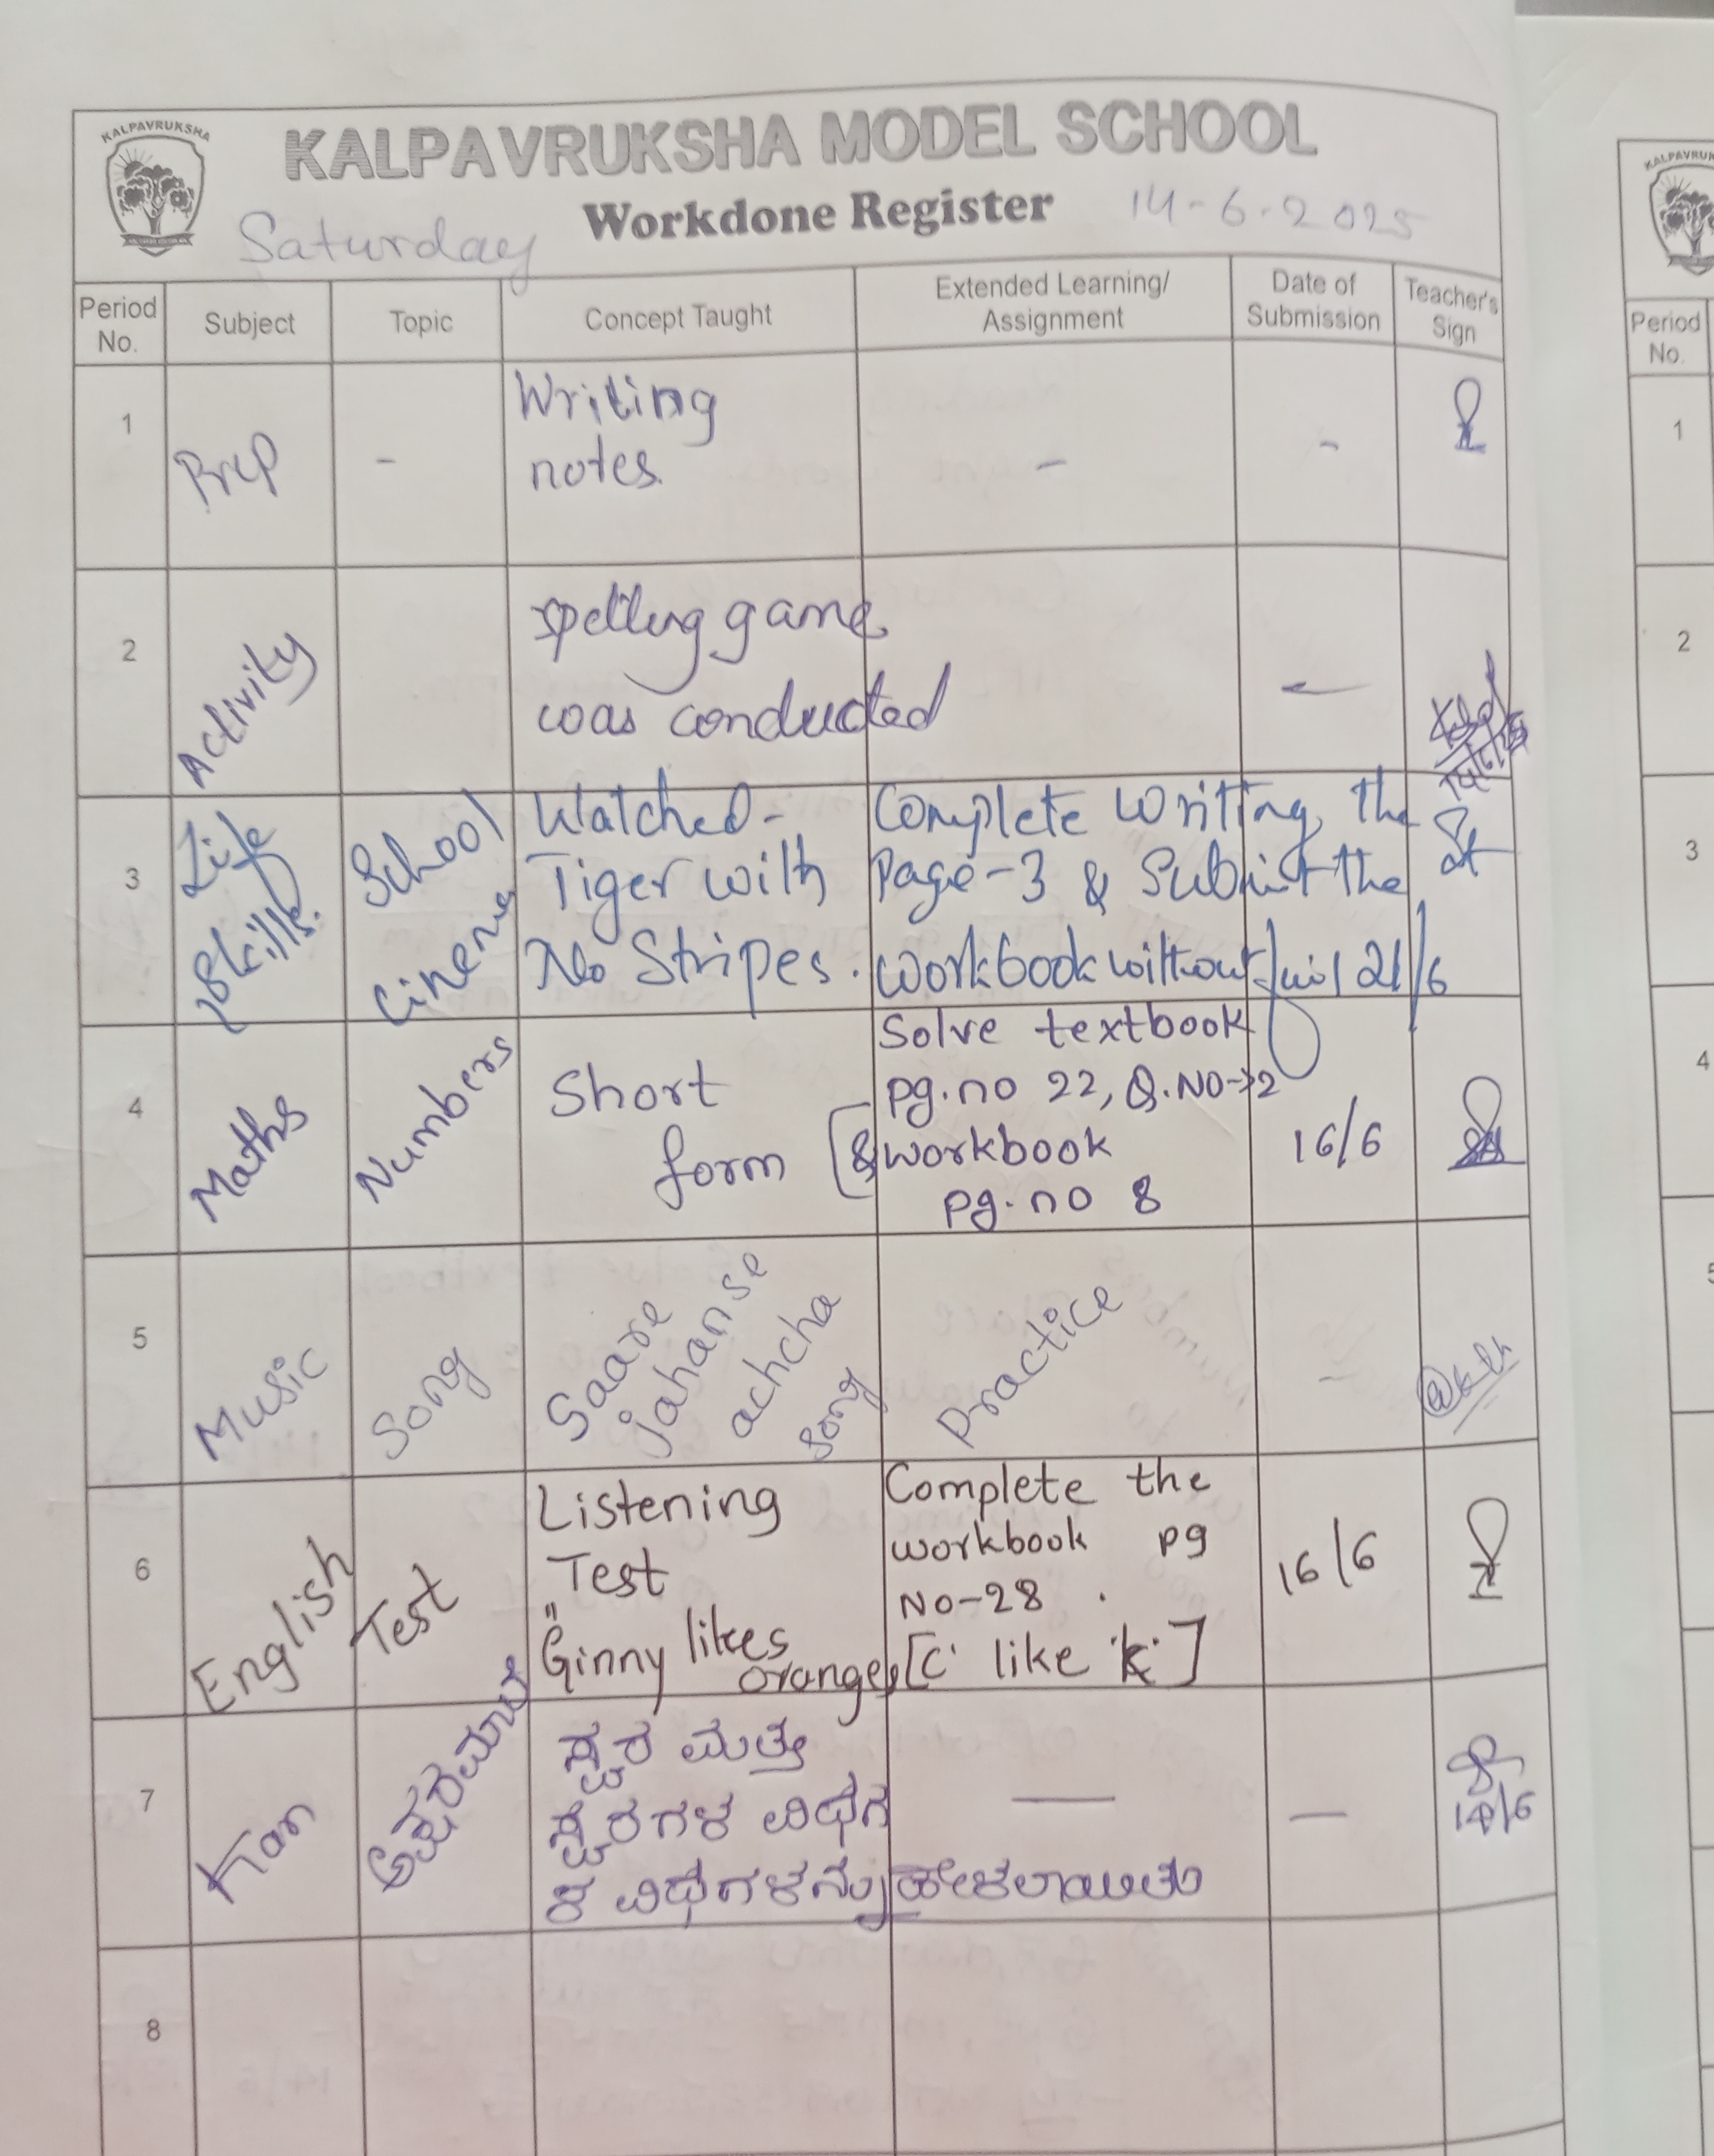 KALPAVRUKSHA
KALPAVRUKSHA MODEL SCHOOL
Workdone Register 14-6-2025
Saturday
Period No. Subject Topic Concept Taught Extended Learning/ Assignment Date of Submission Teacher's Sign
1 Prep - Writing
notes. - -
2 Activity spelling game
was conducted -
14/6/25
3 Life Skills. School Cinema Watched-
Tiger with
No Stripes.
Complete Writing the
Page-3 & Submit the
workbook without fail 21/6
4 Maths Numbers Short
form
Solve textbook
pg.no 22, Q.NO→2
[& workbook
pg.no 8
16/6
5 Music Song Saare
jahanse
achcha
song
Practice -
6 English Test Listening
Test
"Ginny likes
oranges
Complete the
workbook pg
No-28.
['c' like 'k']
16/6
7 Kan ಅಕ್ಷರಮಾಲೆ ಸ್ವರ ಮತ್ತು
ಸ್ವರಗಳ ವಿಧಗ
ಳ ವಿಧಗಳನ್ನು ಹೇಳಲಾಯಿತು
— —
14/6
8
KALPAVRUK
Period No.
1
2
3
4
5